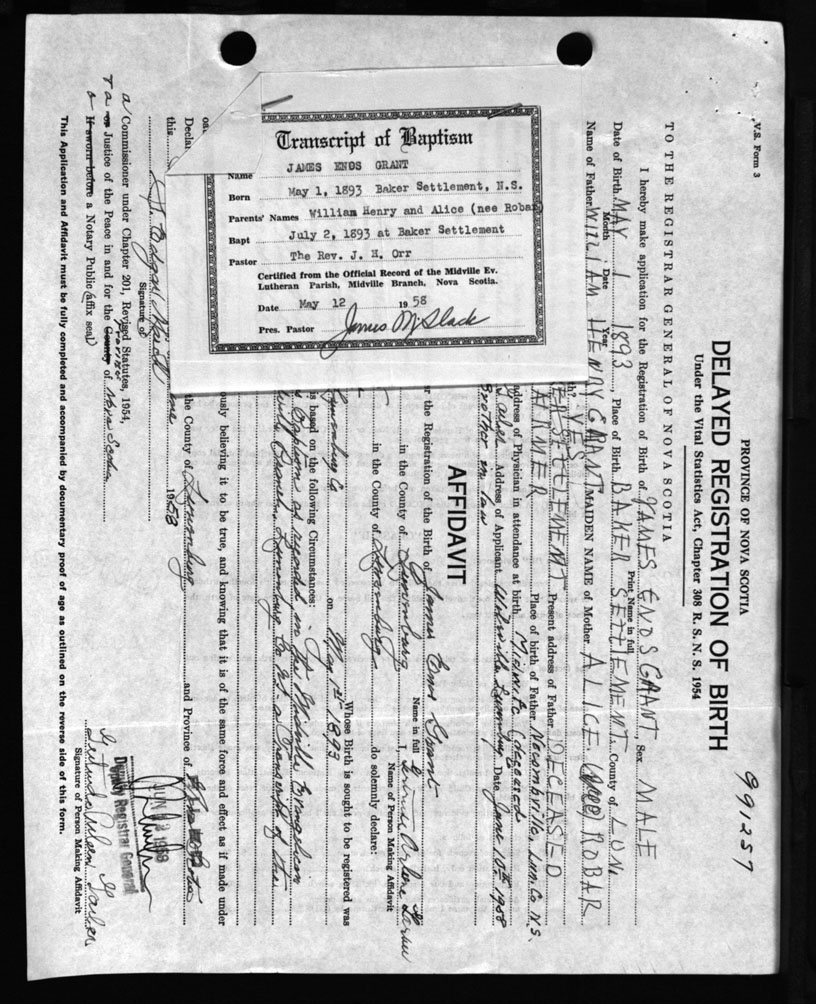 991257
V.S. Form 3
PROVINCE OF NOVA SCOTIA
DELAYED REGISTRATION OF BIRTH
Under the Vital Statistics Act, Chapter 308 R. S. N. S. 1954
TO THE REGISTRAR GENERAL OF NOVA SCOTIA
I hereby make application for the Registration of Birth of JAMES ENOS GRANT, Sex MALE
Print Name in full
Date of Birth MAY 1 1893, Place of Birth BAKER SETTLEMENT County of LUN.
Month Date Year
Name of Father WILLIAM HENRY GRANT MAIDEN NAME of Mother ALICE (NEE) ROBAR
YES
Present address of Father DECEASED
FARMER Place of birth of Father Newcombville, Lun. Co. N.S.
address of Physician in attendance at birth Midwife (deceased)
Address of Applicant Date June 10th 1958
Brother in law
AFFIDAVIT
or the Registration of the Birth of James Enos Grant
Name in full
in the County of Lunenburg I,
Name of Person Making Affidavit
in the County of Lunenburg do solemnly declare:
Whose Birth is sought to be registered was
Lunenburg Co on May 1st 1893
is based on the following Circumstances:
Baptism as recorded in the Midville Evangelican
Branch, Lunenburg Co. N.S. a Transcript of the
ously believing it to be true, and knowing that it is of the same force and effect as if made under
Declar
the County of Lunenburg and Province of
this 1958
Signature of
a Commissioner under Chapter 201, Revised Statutes, 1954,
Justice of the Peace in and for the County of Nova Scotia
Province
If sworn before a Notary Public (affix seal)
JUN 1958
Deputy Registrar General
Signature of Person Making Affidavit
This Application and Affidavit must be fully completed and accompanied by documentary proof of age as outlined on the reverse side of this form.
Transcript of Baptism
Name JAMES ENOS GRANT
Born May 1, 1893 Baker Settlement, N.S.
Parents' Names William Henry and Alice (nee Robar)
Bapt July 2, 1893 at Baker Settlement
Pastor The Rev. J. H. Orr
Certified from the Official Record of the Midville Ev.
Lutheran Parish, Midville Branch, Nova Scotia.
Date May 12 1958
Pres. Pastor James M. Slack